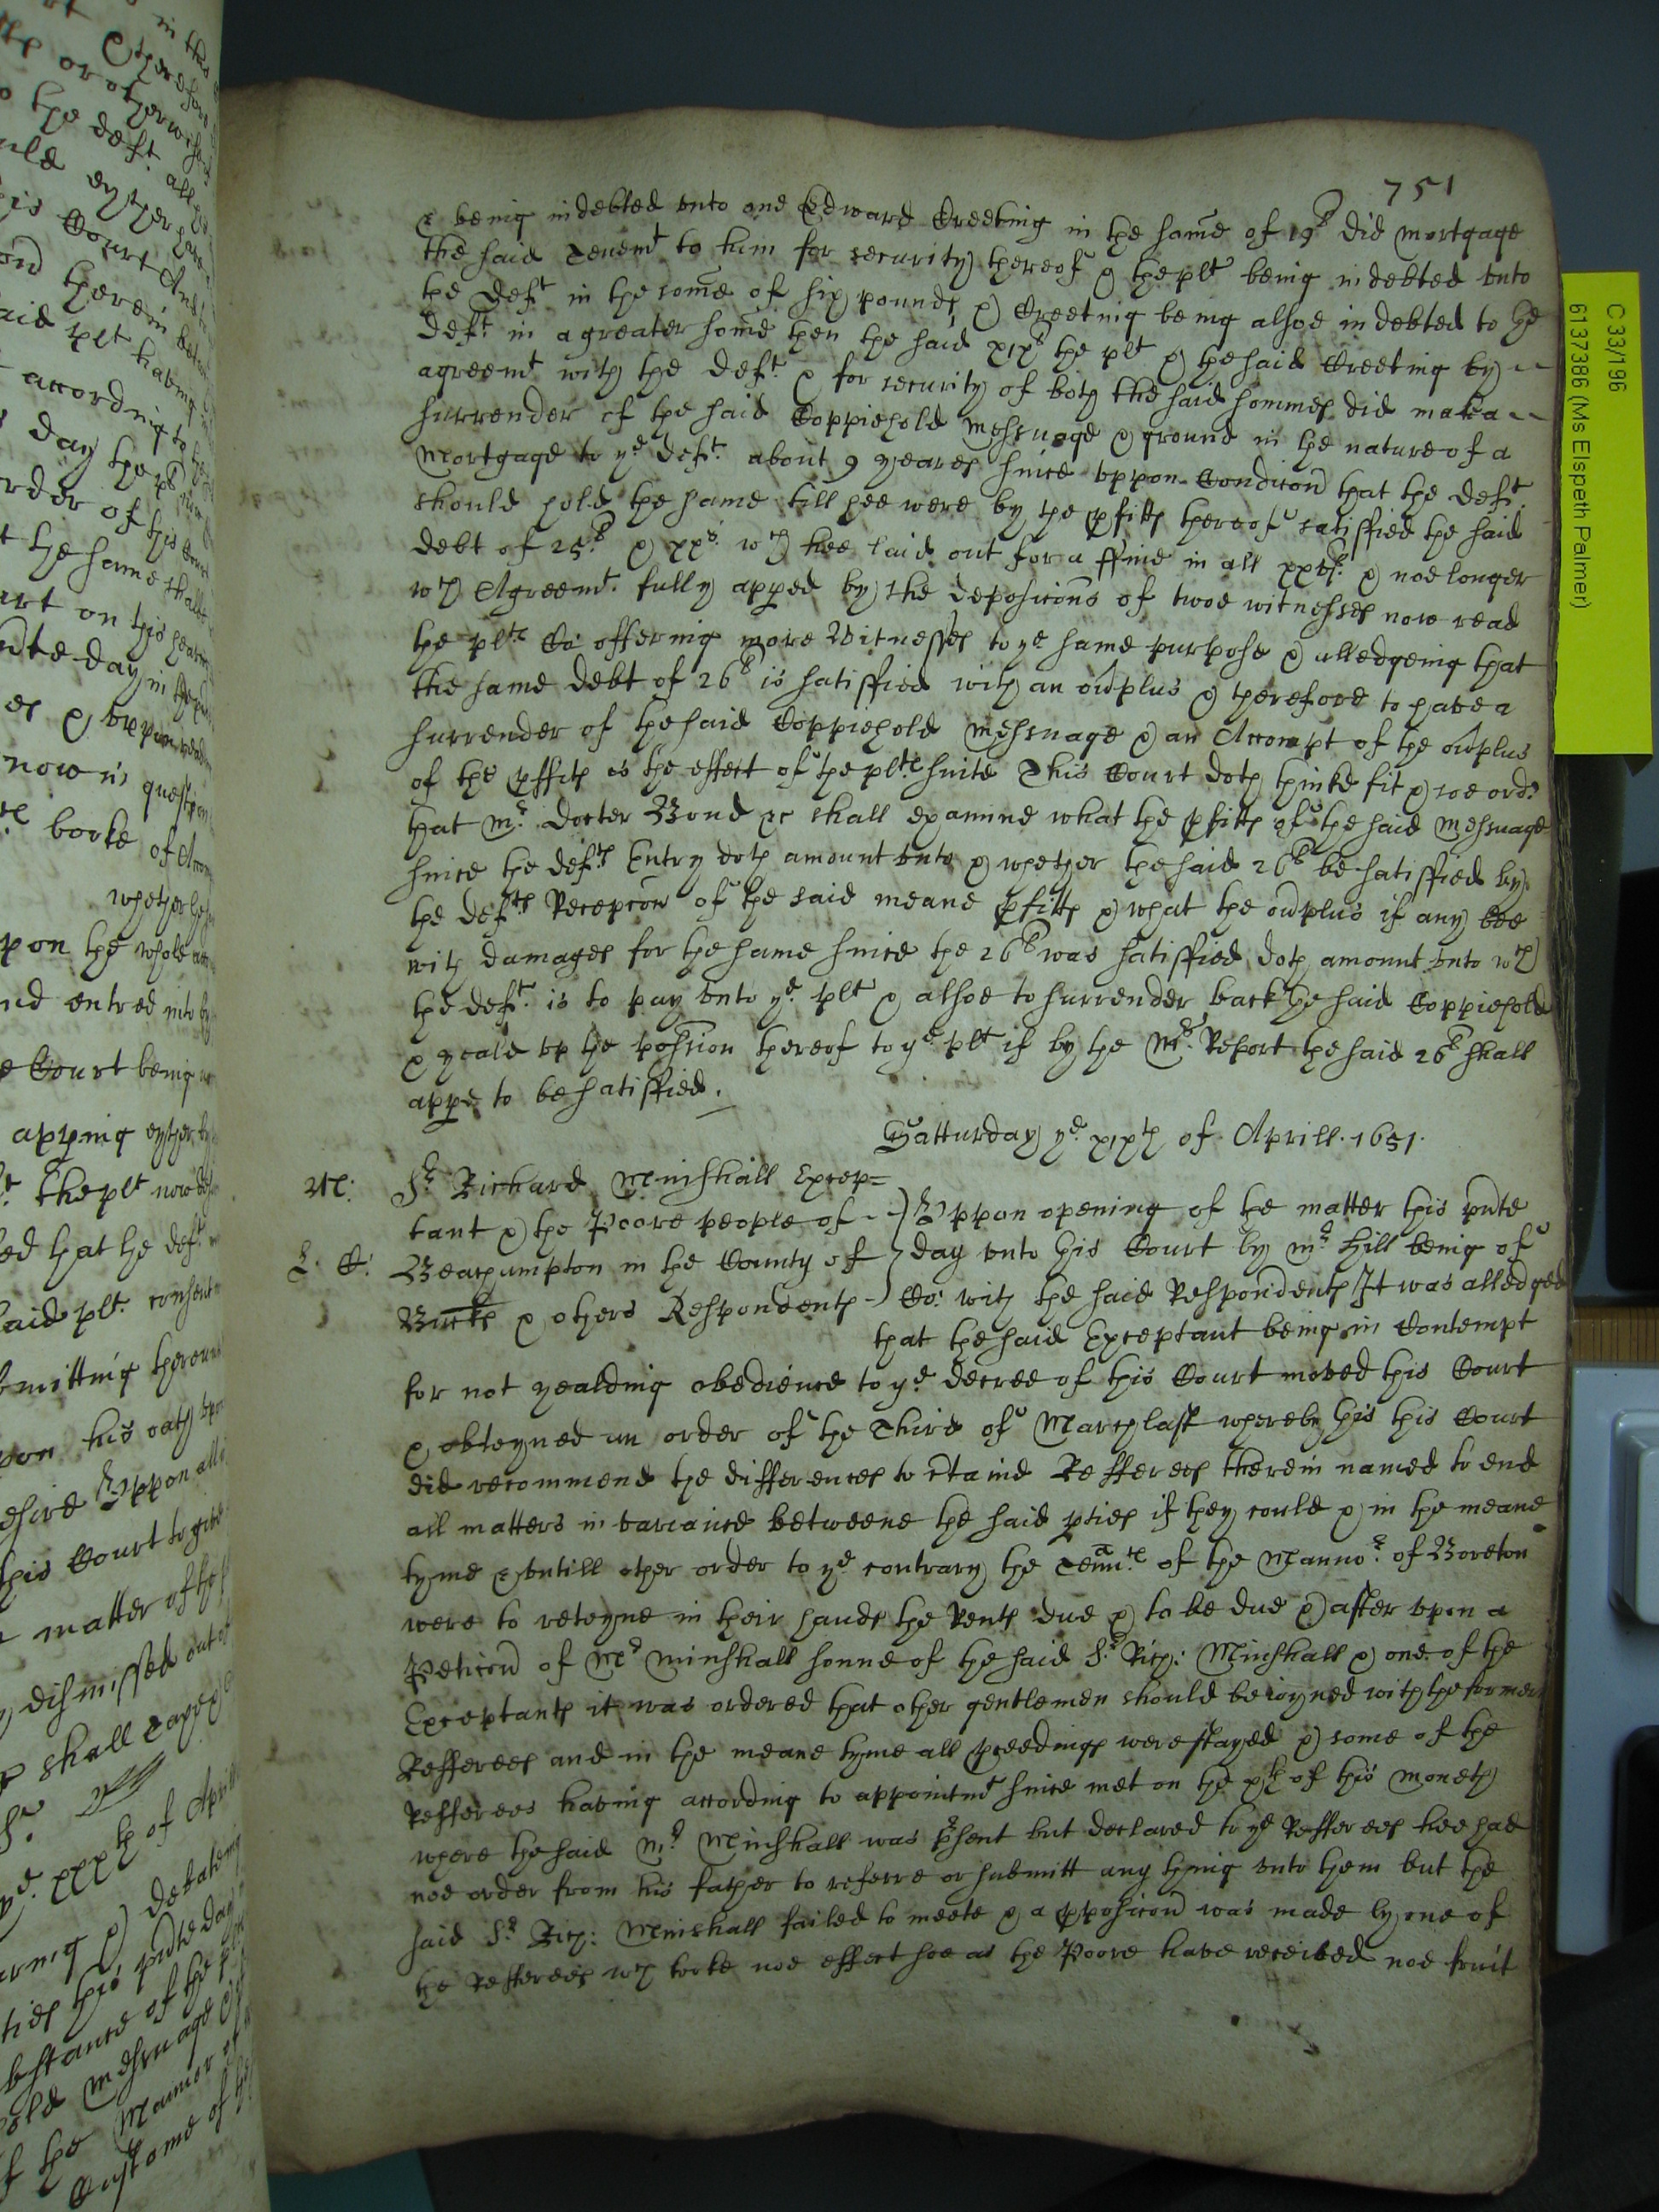 751
& being indebted vnto one Edward Creeting in the some of 19l did mortgage
the said Tenemt to him for security thereof & the plt being indebted vnto
the Deft in the some of six pounds & Creeting being alsoe indebted to the
Deft in a greater some then the said xixl the plt & the said Creeting by
agreemt with the Deft & for security of both the said sommes did make
surrender of the said Coppiehold Messuage & ground in the nature of a
Mortgage to ye Deft about 9 yeares since vppon Condicon that the Deft
should hold the same till hee were by the pfitts thereof satisfied the said
debt of 25l & xxs wch hee laid out for a ffine in all xxvil & noe longer
wch Agreemt fully apped by the deposicons of twoe witnesses now read
the plts Co: offering more Witnesses to ye same purpose & alledgeing that
the same debt of 26l is satisfied with an ouplus & therefore to have a
surrender of the said Coppiehold Messuage & an Accompt of the ouplus
of the pffitts is the effect of the plts suite This Court doth thinke fit & soe ordr
that Mr Docter Bond &c shall examine what the pfitts of the said Messuage
since the defts Entry doth amount vnto & whether the said 26l be satisfied by
the defts Recepcon of the said meane pfitts & what the ouplus if any bee
with damages for the same since the 26l was satisfied doth amount vnto wch
the deft is to pay vnto ye plt & alsoe to surrender back the said Coppiehold
& yeald vp the possion thereof to ye plt if by the Mrs Report the said 26l shall
appe to be satisfied.
Satturday ye xixth of Aprill 1651.
Sr Richard Minshall Excep=
tant & the Poore people of
Beachumpton in the County of
Bucks & others Respondents
Vppon opening of the matter this pnte
day vnto this Court by Mr Hill being of
Co: with the said Respondents It was alledged
that the said Exceptant being in Contempt
for not yealding obedience to ye decree of this Court moved this Court
& obteyned an order of the Third of March last whereby this this Court
did recommend the differences to ctaine Refferees therein named to end
all matters in variance betweene the said pties if they could & in the meane
tyme & vntill other order to ye contrary the Tennts of the Mannor of Boreton
were to reteyne in their hands the Rents due & to be due & after vpon a
Peticon of Mr Minshall sonne of the said Sr Rich: Minshall & one of the
Exceptants it was ordered that other gentlemen should be ioyned with the former
Refferees and in the meane tyme all pceedings were stayed & some of the
Refferees having according to appointmt since met on the xth of this moneth
where the said Mr Minshall was psent but declared to ye Refferees hee had
noe order from his father to referre or submitt any thing vnto them but the
said Sr Rich: Minshall failed to meete & a pposicon was made by one of
the Refferees wch tooke noe effect soe as the Poore have received noe fruit
C 33/196
6137386 (Ms Elspeth Palmer)